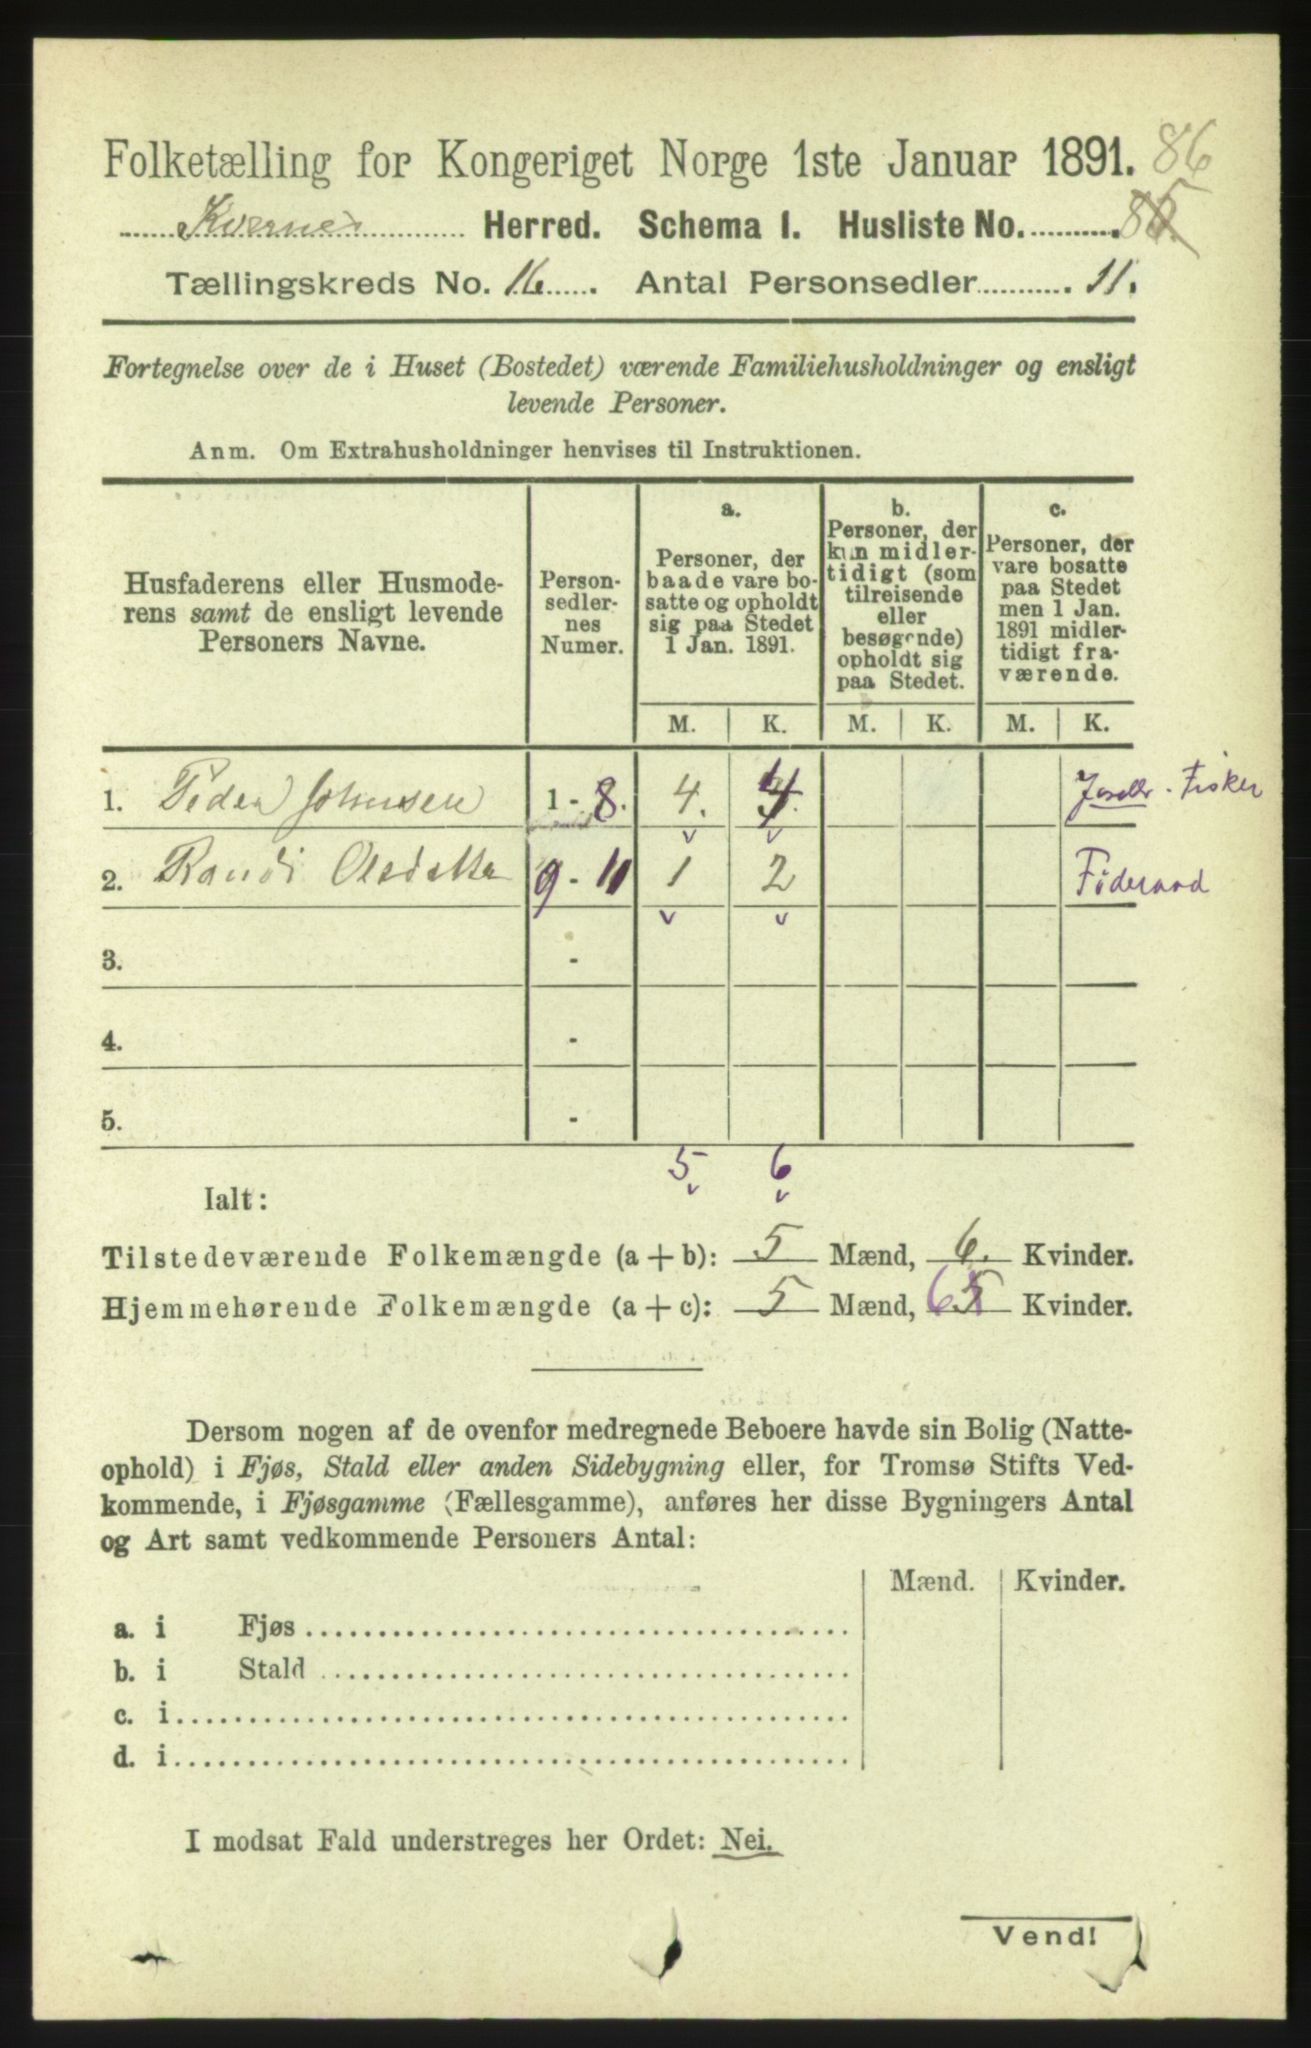 Folketælling for Kongeriget Norge 1ste Januar 1891. 86
Kvernes Herred. Schema I. Husliste No. 85.
Tællingskreds No. 16. Antal Personsedler 11.
Fortegnelse over de i Huset (Bostedet) værende Familiehusholdninger og ensligt
levende Personer.
Anm. Om Extrahusholdninger henvises til Instruktionen.
Husfaderens eller Husmode-
rens samt de ensligt levende
Personers Navne.
Person-
sedler-
nes
Numer.
a.
Personer, der
baade vare bo-
satte og opholdt
sig paa Stedet
1 Jan. 1891.
b.
Personer, der
kun midler-
tidigt (som
tilreisende
eller
besøgende)
opholdt sig
paa Stedet.
c.
Personer, der
vare bosatte
paa Stedet
men 1 Jan.
1891 midler-
tidigt fra-
værende.
M. K. M. K. M. K.
1. Peder Johnsen 1 - 8. 4. 4. Jordbr. Fisker
2. Randi Olsdatter 9 - 11 1 2 Føderaad
3. -
4. -
5. -
5 6
Ialt:
Tilstedeværende Folkemængde (a + b): 5 Mænd, 6. Kvinder.
Hjemmehørende Folkemængde (a + c): 5 Mænd, 6 5 Kvinder.
Dersom nogen af de ovenfor medregnede Beboere havde sin Bolig (Natte-
ophold) i Fjøs, Stald eller anden Sidebygning eller, for Tromsø Stifts Ved-
kommende, i Fjøsgamme (Fællesgamme), anføres her disse Bygningers Antal
og Art samt vedkommende Personers Antal:
Mænd. Kvinder.
a. i Fjøs
b. i Stald
c. i
d. i
I modsat Fald understreges her Ordet: Nei.
Vend!